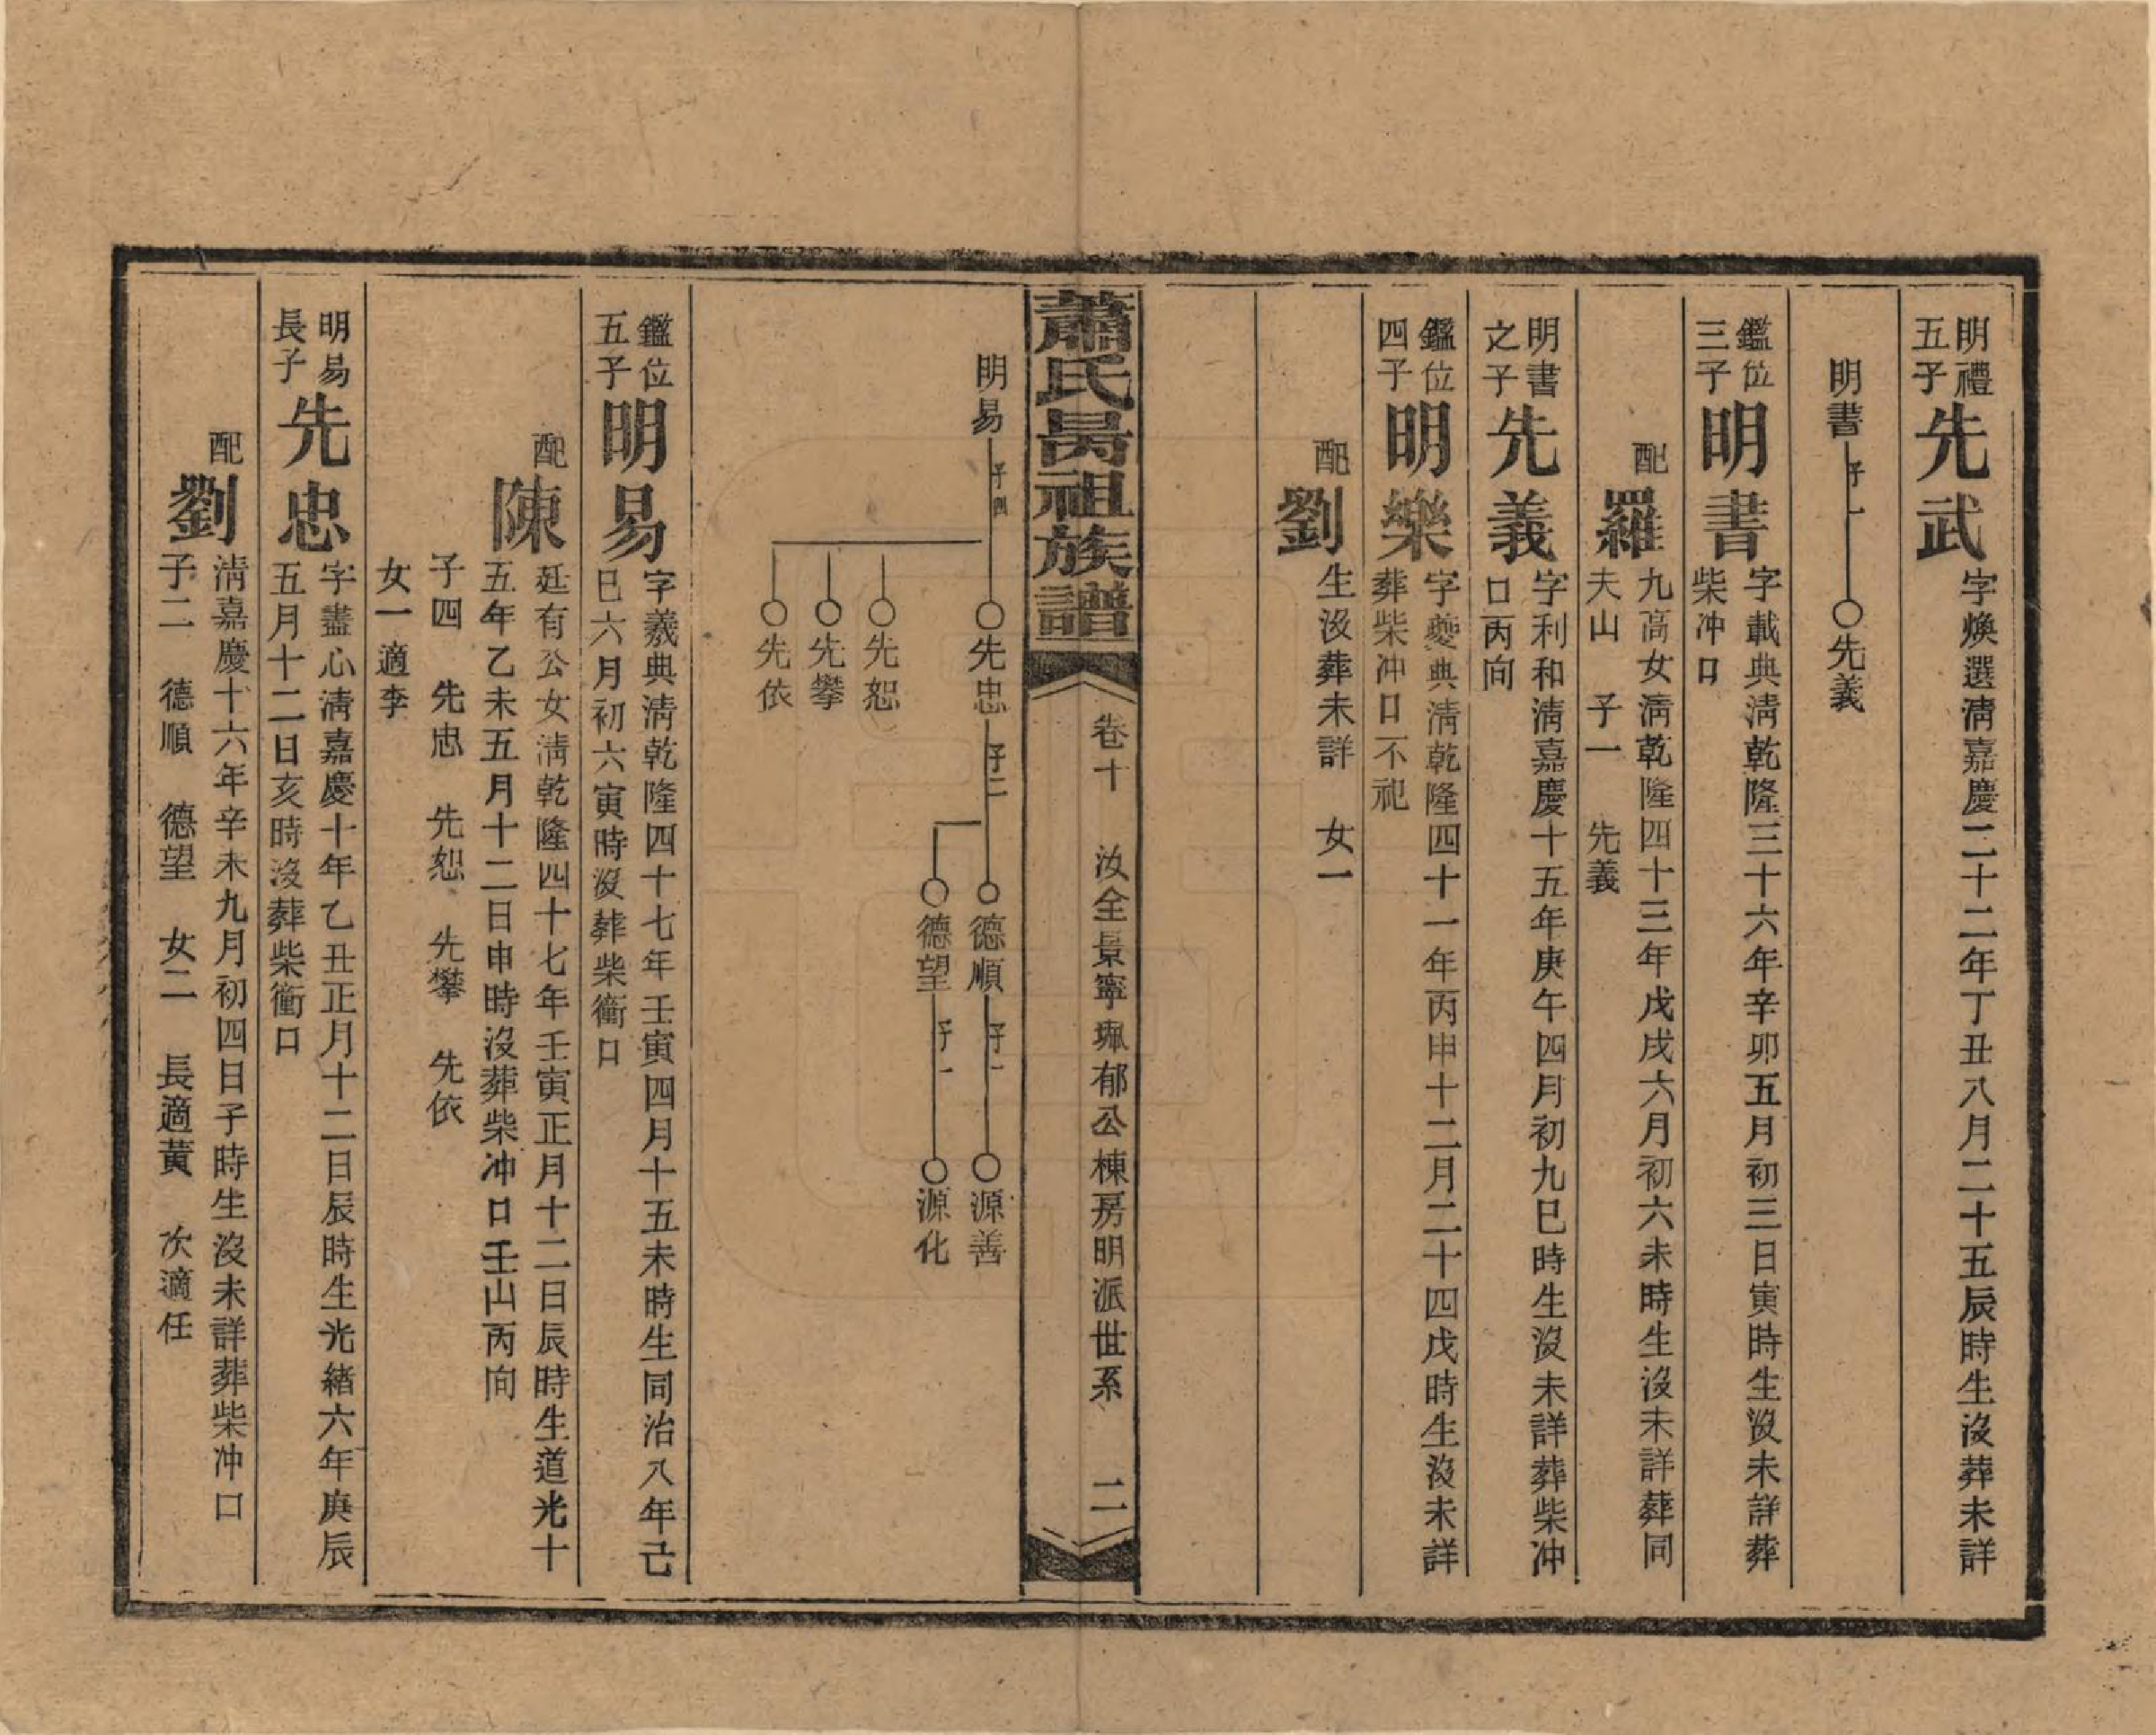 明禮
五子
先武
字煥選清嘉慶二十二年丁丑八月二十五辰時生沒葬未詳
明書 子一 先義
鑑位
三子
明書
字載典清乾隆三十六年辛卯五月初三日寅時生沒未詳葬
柴冲口
配
羅
九高女清乾隆四十三年戊戌六月初六未時生沒未詳葬同
夫山 子一 先義
明書
之子
先義
字利和清嘉慶十五年庚午四月初九巳時生沒未詳葬柴冲
口丙向
鑑位
四子
明樂
字夔典清乾隆四十一年丙申十二月二十四戊時生沒未詳
葬柴冲口不祀
配
劉
生沒葬未詳 女一
蕭氏昺祖族譜
卷十 汝全景寧珮郁公棟房明派世系 二
明易 子四 先忠 子二 德順 子一 源善
德望 子一 源化
先恕
先攀
先依
鑑位
五子
明易
字羲典清乾隆四十七年壬寅四月十五未時生同治八年己
巳六月初六寅時沒葬柴衝口
配
陳
廷有公女清乾隆四十七年壬寅正月十二日辰時生道光十
五年乙未五月十二日申時沒葬柴冲口壬山丙向
子四 先忠 先恕 先攀 先依
女一適李
明易
長子
先忠
字盡心清嘉慶十年乙丑正月十二日辰時生光緒六年庚辰
五月十二日亥時沒葬柴衝口
配
劉
清嘉慶十六年辛未九月初四日子時生沒未詳葬柴冲口
子二 德順 德望 女二 長適黃 次適任